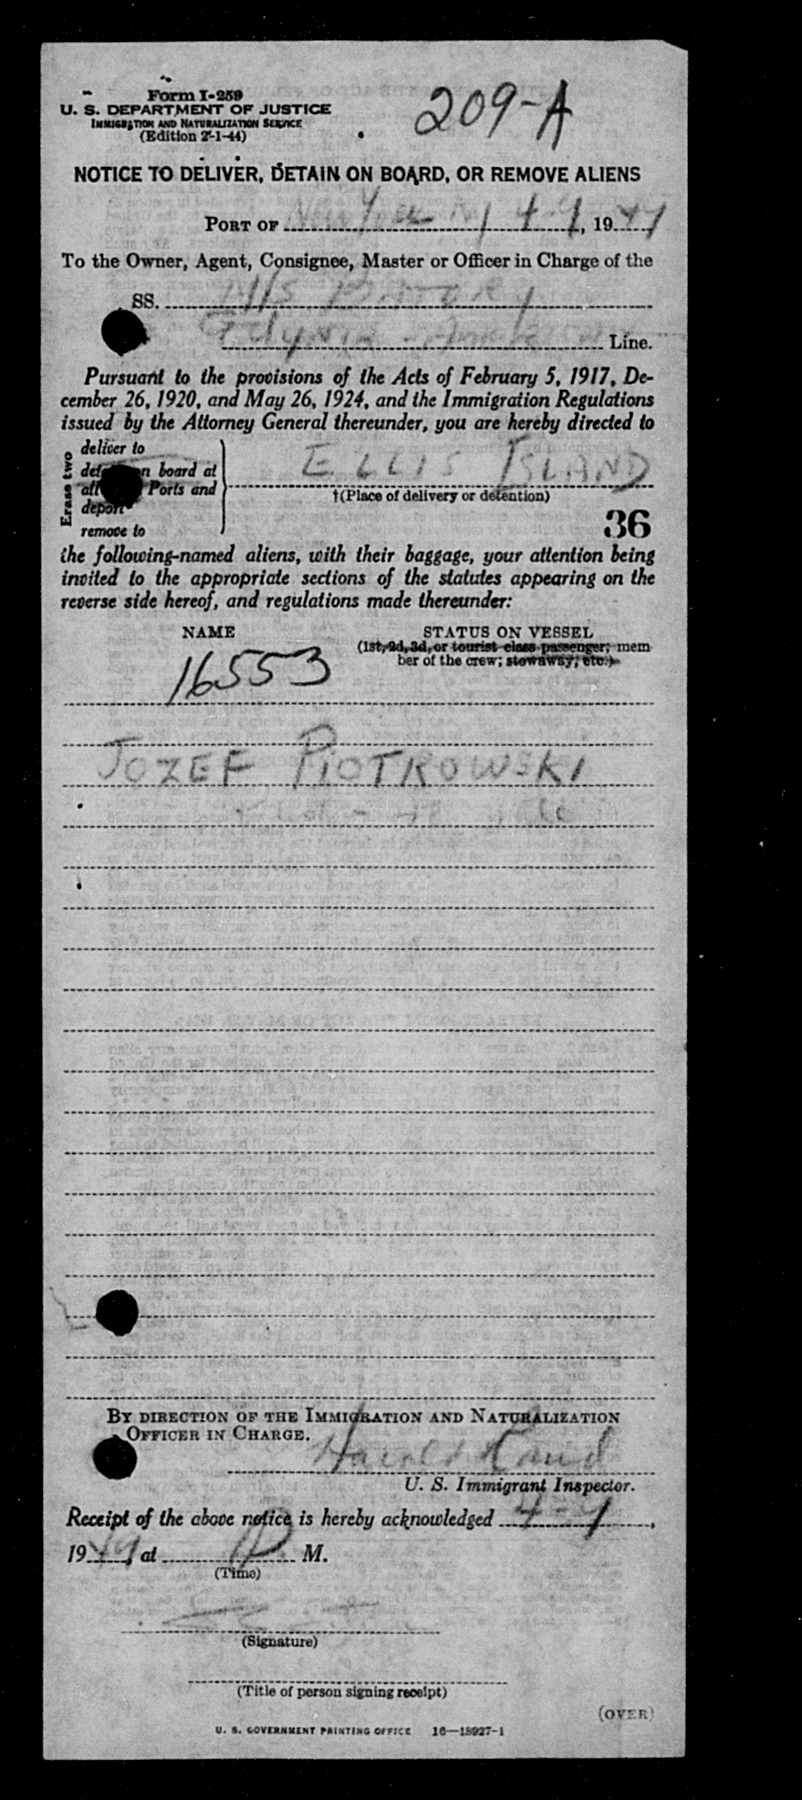 Form I-259
209-A
U. S. DEPARTMENT OF JUSTICE
IMMIGRATION AND NATURALIZATION SERVICE
(Edition 2-1-44)
NOTICE TO DELIVER, DETAIN ON BOARD, OR REMOVE ALIENS
PORT OF New York NY 4-9, 1949
To the Owner, Agent, Consignee, Master or Officer in Charge of the
SS. M/S BATORY
Gdynia - America Line.
Pursuant to the provisions of the Acts of February 5, 1917, De-
cember 26, 1920, and May 26, 1924, and the Immigration Regulations
issued by the Attorney General thereunder, you are hereby directed to
Erase two
deliver to
board at
Ports and
deport
remove to
ELLIS ISLAND
†(Place of delivery or detention)
36
the following-named aliens, with their baggage, your attention being
invited to the appropriate sections of the statutes appearing on the
reverse side hereof, and regulations made thereunder:
NAME
STATUS ON VESSEL
(1st, 2d, 3d, or tourist class passenger; mem
ber of the crew; stowaway; etc.)
16553
JOZEF PIOTROWSKI
BY DIRECTION OF THE IMMIGRATION AND NATURALIZATION
OFFICER IN CHARGE.
Harold
U. S. Immigrant Inspector.
Receipt of the above notice is hereby acknowledged 4-9,
1949, at M.
(Time)
(Signature)
(Title of person signing receipt)
(OVER)
U. S. GOVERNMENT PRINTING OFFICE 16—18927-1